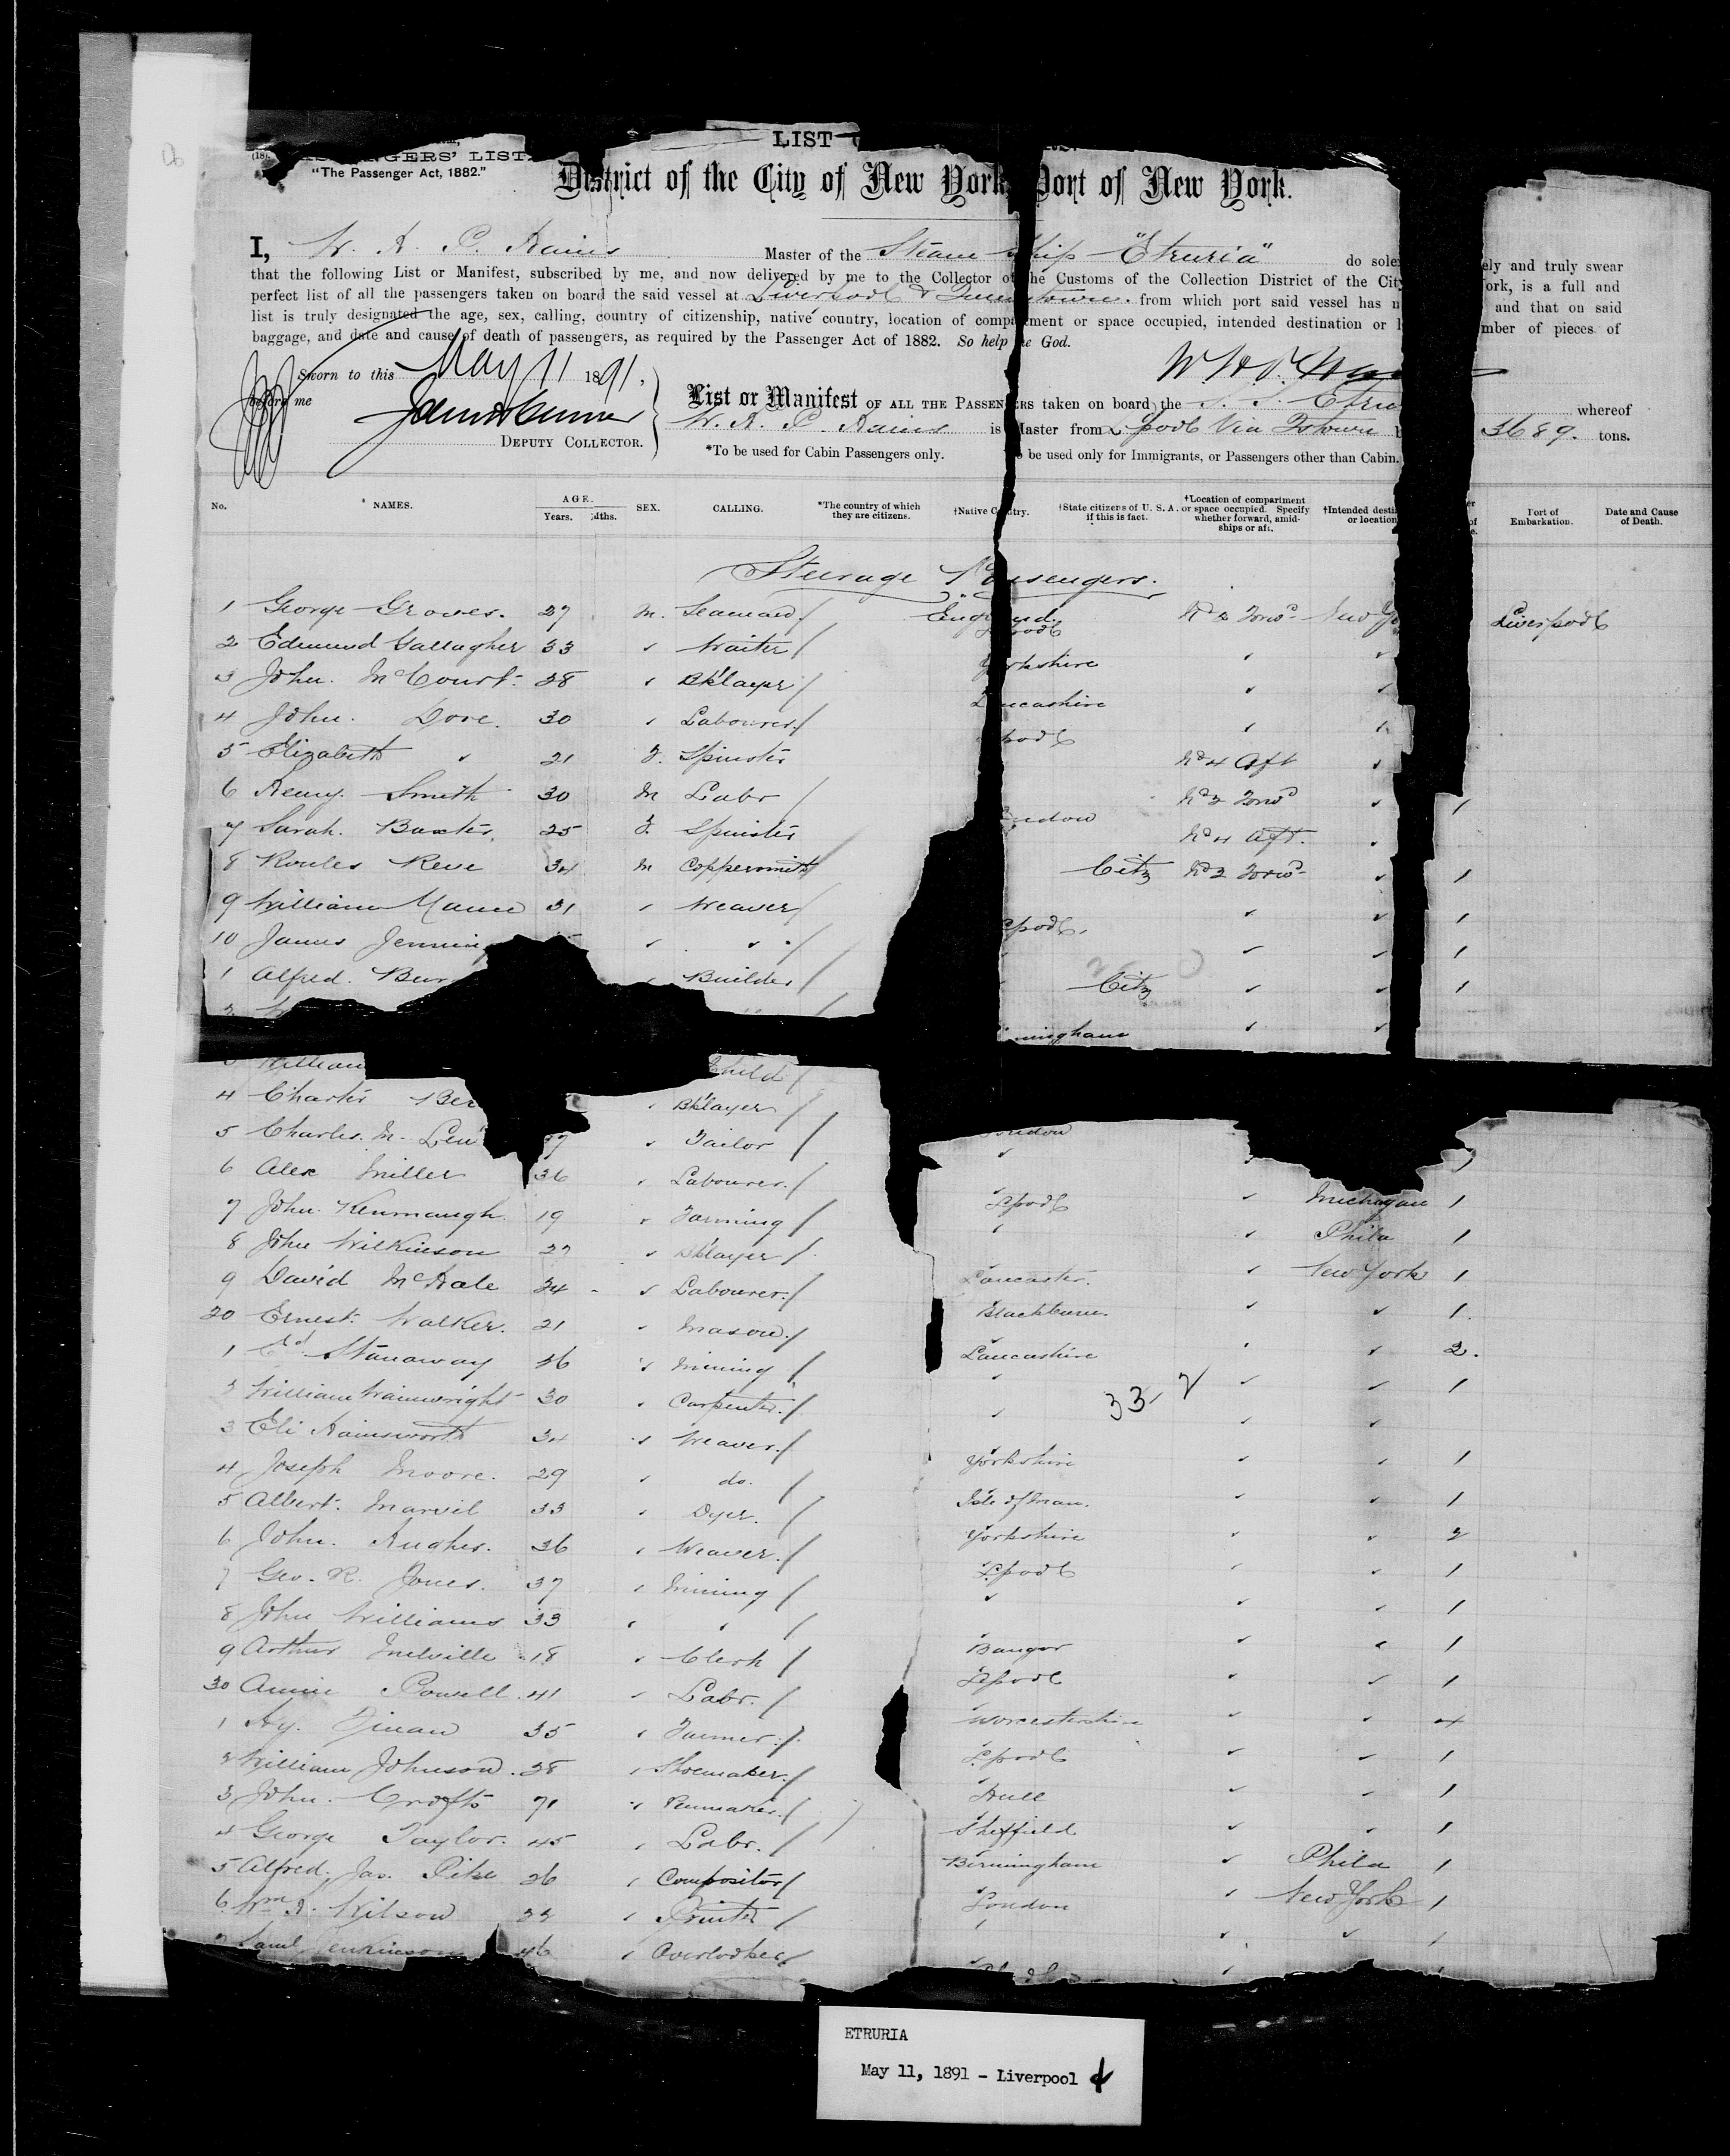 LIST
PASSENGERS' LIST
"The Passenger Act, 1882."
District of the City of New York, Port of New York.
I, W. H. P. Hains Master of the Steam Ship "Etruria" do sole ely and truly swear
that the following List or Manifest, subscribed by me, and now delivered by me to the Collector of the Customs of the Collection District of the City ork, is a full and
perfect list of all the passengers taken on board the said vessel at Liverpool & Queenstown from which port said vessel has n and that on said
list is truly designated the age, sex, calling, country of citizenship, native country, location of compartment or space occupied, intended destination or l mber of pieces of
baggage, and date and cause of death of passengers, as required by the Passenger Act of 1882. So help me God.
W. H. P. Hains
Sworn to this May 11 1891,
before me
DEPUTY COLLECTOR.
List or Manifest OF ALL THE PASSENGERS taken on board the S. S. Etru whereof
W. H. P. Hains is Master from L'pool Via Qtown b 3689. tons.
*To be used for Cabin Passengers only. To be used only for Immigrants, or Passengers other than Cabin.
No. * NAMES. AGE. Years. Mths. SEX. CALLING. *The country of which they are citizens. †Native Country. †State citizens of U. S. A. if this is fact. †Location of compartment or space occupied. Specify whether forward, amidships or aft. †Intended desti or location Port of Embarkation. Date and Cause of Death.
Steerage Passengers.
1 George Graves. 27 M. Seaman / England L'pool No 2 Forwd New Yo Liverpool
2 Edmund Gallagher 33 " Waiter / Yorkshire " "
3 John McCourt 28 " Bklayer / Lancashire " "
4 John Dore. 30 " Labourer / pool " "
5 Elizabeth " 21 F. Spinster No 4 Aft "
6 Henry Smith 30 M Labr / ndon No 2 Forwd " 1
7 Sarah Baxter 25 F. Spinster No 4 Aft. "
8 Reve 34 M Coppersmith / Citz No 2 Forwd " 1
9 William Mann 31 " Weaver / pool. " " 1
10 James Jennin " " / " " 1
1 Alfred. Bur " Builder / Citz " " 1
2 mingham " "
3 William Child /
4 Charles Ber " Bklayer /
5 Charles. M. Lev 7 " Tailor / London 1
6 Alex Miller 36 " Labourer / L'pool " Michigan 1
7 John Kenmaugh 19 " Farming / " " Phila 1
8 John Wilkinson 22 " Bklayer / Lancaster. " New York 1
9 David McHale 24 " Labourer / Blackburn " " 1
20 Ernest Walker. 21 " Mason / Lancashire " " 2.
1 Ed Stanaway 36 " Mining / " " " 1
2 William Wainwright 30 " Carpenter / " " "
3 Eli Hainsworth 34 " Weaver / Yorkshire " " 1
4 Joseph Moore. 29 " do. / Isle of Man. " " 1
5 Albert. Marvil 33 " Dyer. / Yorkshire " " 2
6 John. Hughes. 36 " Weaver. / L'pool " " 1
7 Geo. R. Jones. 37 " Mining / " " " 1
8 John Williams 33 " " / Bangor " " 1
9 Arthur Melville 18 " Clerk / L'pool " " 1
30 Annie Powell 41 " Labr. / Worcestershire " " 4
1 Hy. Finan 35 " Farmer / L'pool " " 1
2 William Johnson 28 " Shoemaker / Hull " " 1
3 John. Crofts 71 " Penmaker / Sheffield " " 1
4 George Taylor. 45 " Labr. / Birmingham " Phila 1
5 Alfred. Jas. Pike 26 " Compositor / London " New York 1
6 Wm H. Wilson 22 " Printer / " " " 1
7 Saml Jenkinson 46 " Overlooker / " 1
33 2
ETRURIA
May 11, 1891 - Liverpool